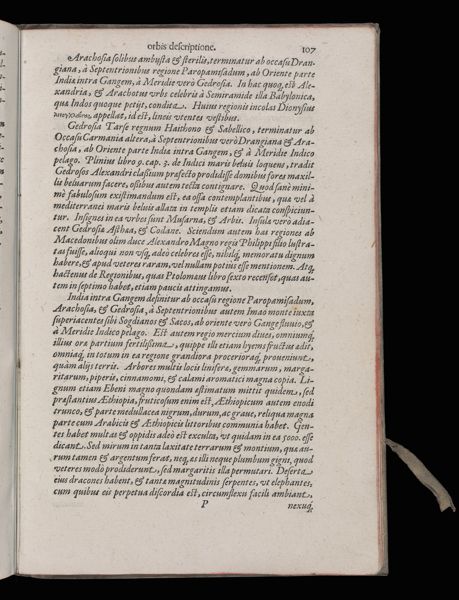 orbis descriptione. 107
Arachosia solibus ambusta & sterilis, terminatur ab occasu Dran-
giana, à Septentrionibus regione Paropamisadum, ab Oriente parte
Indiæ intra Gangem, à Meridie verò Gedrosia. In hac quoq, est Ale-
xandria, & Arachotus vrbs celebris à Semiramide illa Babylonica,
qua Indos quoque petijt, condita. Huius regionis incolas Dionysius
appellat, id est, lineis vtentes vestibus.
Gedrosia Tarse regnum Haithono & Sabellico, terminatur ab
Occasu Carmania altera, à Septentrionibus verò Drangiana & Ara-
chosia, ab Oriente parte Indiæ intra Gangem, & à Meridie Indico
pelago. Plinius libro 9. cap. 3. de Indici maris beluis loquens, tradit
Gedrosos Alexandri classium præfecto prodidisse domibus fores maxil-
lis beluarum facere, ossibus autem tecta contignare. Quod sanè mini-
mè fabulosum existimandum est, ea ossa contemplantibus, quæ vel à
mediterranei maris beluis allata in templis etiam dicata conspiciun-
tur. Insignes in ea vrbes sunt Musarna, & Arbis. Insulæ verò adia-
cent Gedrosiæ Asthæa, & Codane. Sciendum autem has regiones ab
Macedonibus olim duce Alexandro Magno regis Philippi filio lustra-
tas fuisse, alioqui non vsq, adeò celebres esse, nihilq, memoratu dignum
habere, & apud veteres raram, vel nullam potius esse mentionem. Atq,
hactenus de Regionibus, quas Ptolomæus libro sexto recenset, quas au-
tem in septimo habet, etiam paucis attingamus.
India intra Gangem definitur ab occasu regione Paropamisadum,
Arachosia, & Gedrosia, à Septentrionibus autem Imao monte iuxta
superiacentes sibi Sogdianos & Sacos, ab oriente verò Gange fluuio, &
à Meridie Indico pelago. Est autem regio mercium diues, omniumq,
illius oræ partium fertilissima, quippe ille etiam hyems fructus adit,
omniaq, in totum in ea regione grandiora procerioraq, proueniunt,
quàm alijs terris. Arbores multis locis linifera, gemmarum, marga-
ritarum, piperis, cinnamomi, & calami aromatici magna copia. Li-
gnum etiam Ebeni magno quondam æstimatum mittit quidem, sed
præstantius Æthiopia, fruticosum enim est Æthiopicum autem enodi
trunco, & parte medullacea nigrum, durum, ac graue, reliqua magna
parte cum Arabicis & Æthiopicis littoribus communia habet. Gen-
tes habet multas & oppidis adeò est exculta, vt quidam in ea 5000. esse
dicant. Sed mirum in tanta laxitate terrarum & montium, qua au-
rum tamen & argentum ferat, neq, as illi neque plumbum gigni, quod
veteres modò prodiderunt, sed margaritis illa permutari. Deserta
eius dracones habent, & tantæ magnitudinis serpentes, vt elephantes,
cum quibus eis perpetua discordia est, circumflexu facili ambiant,
P nexuq,